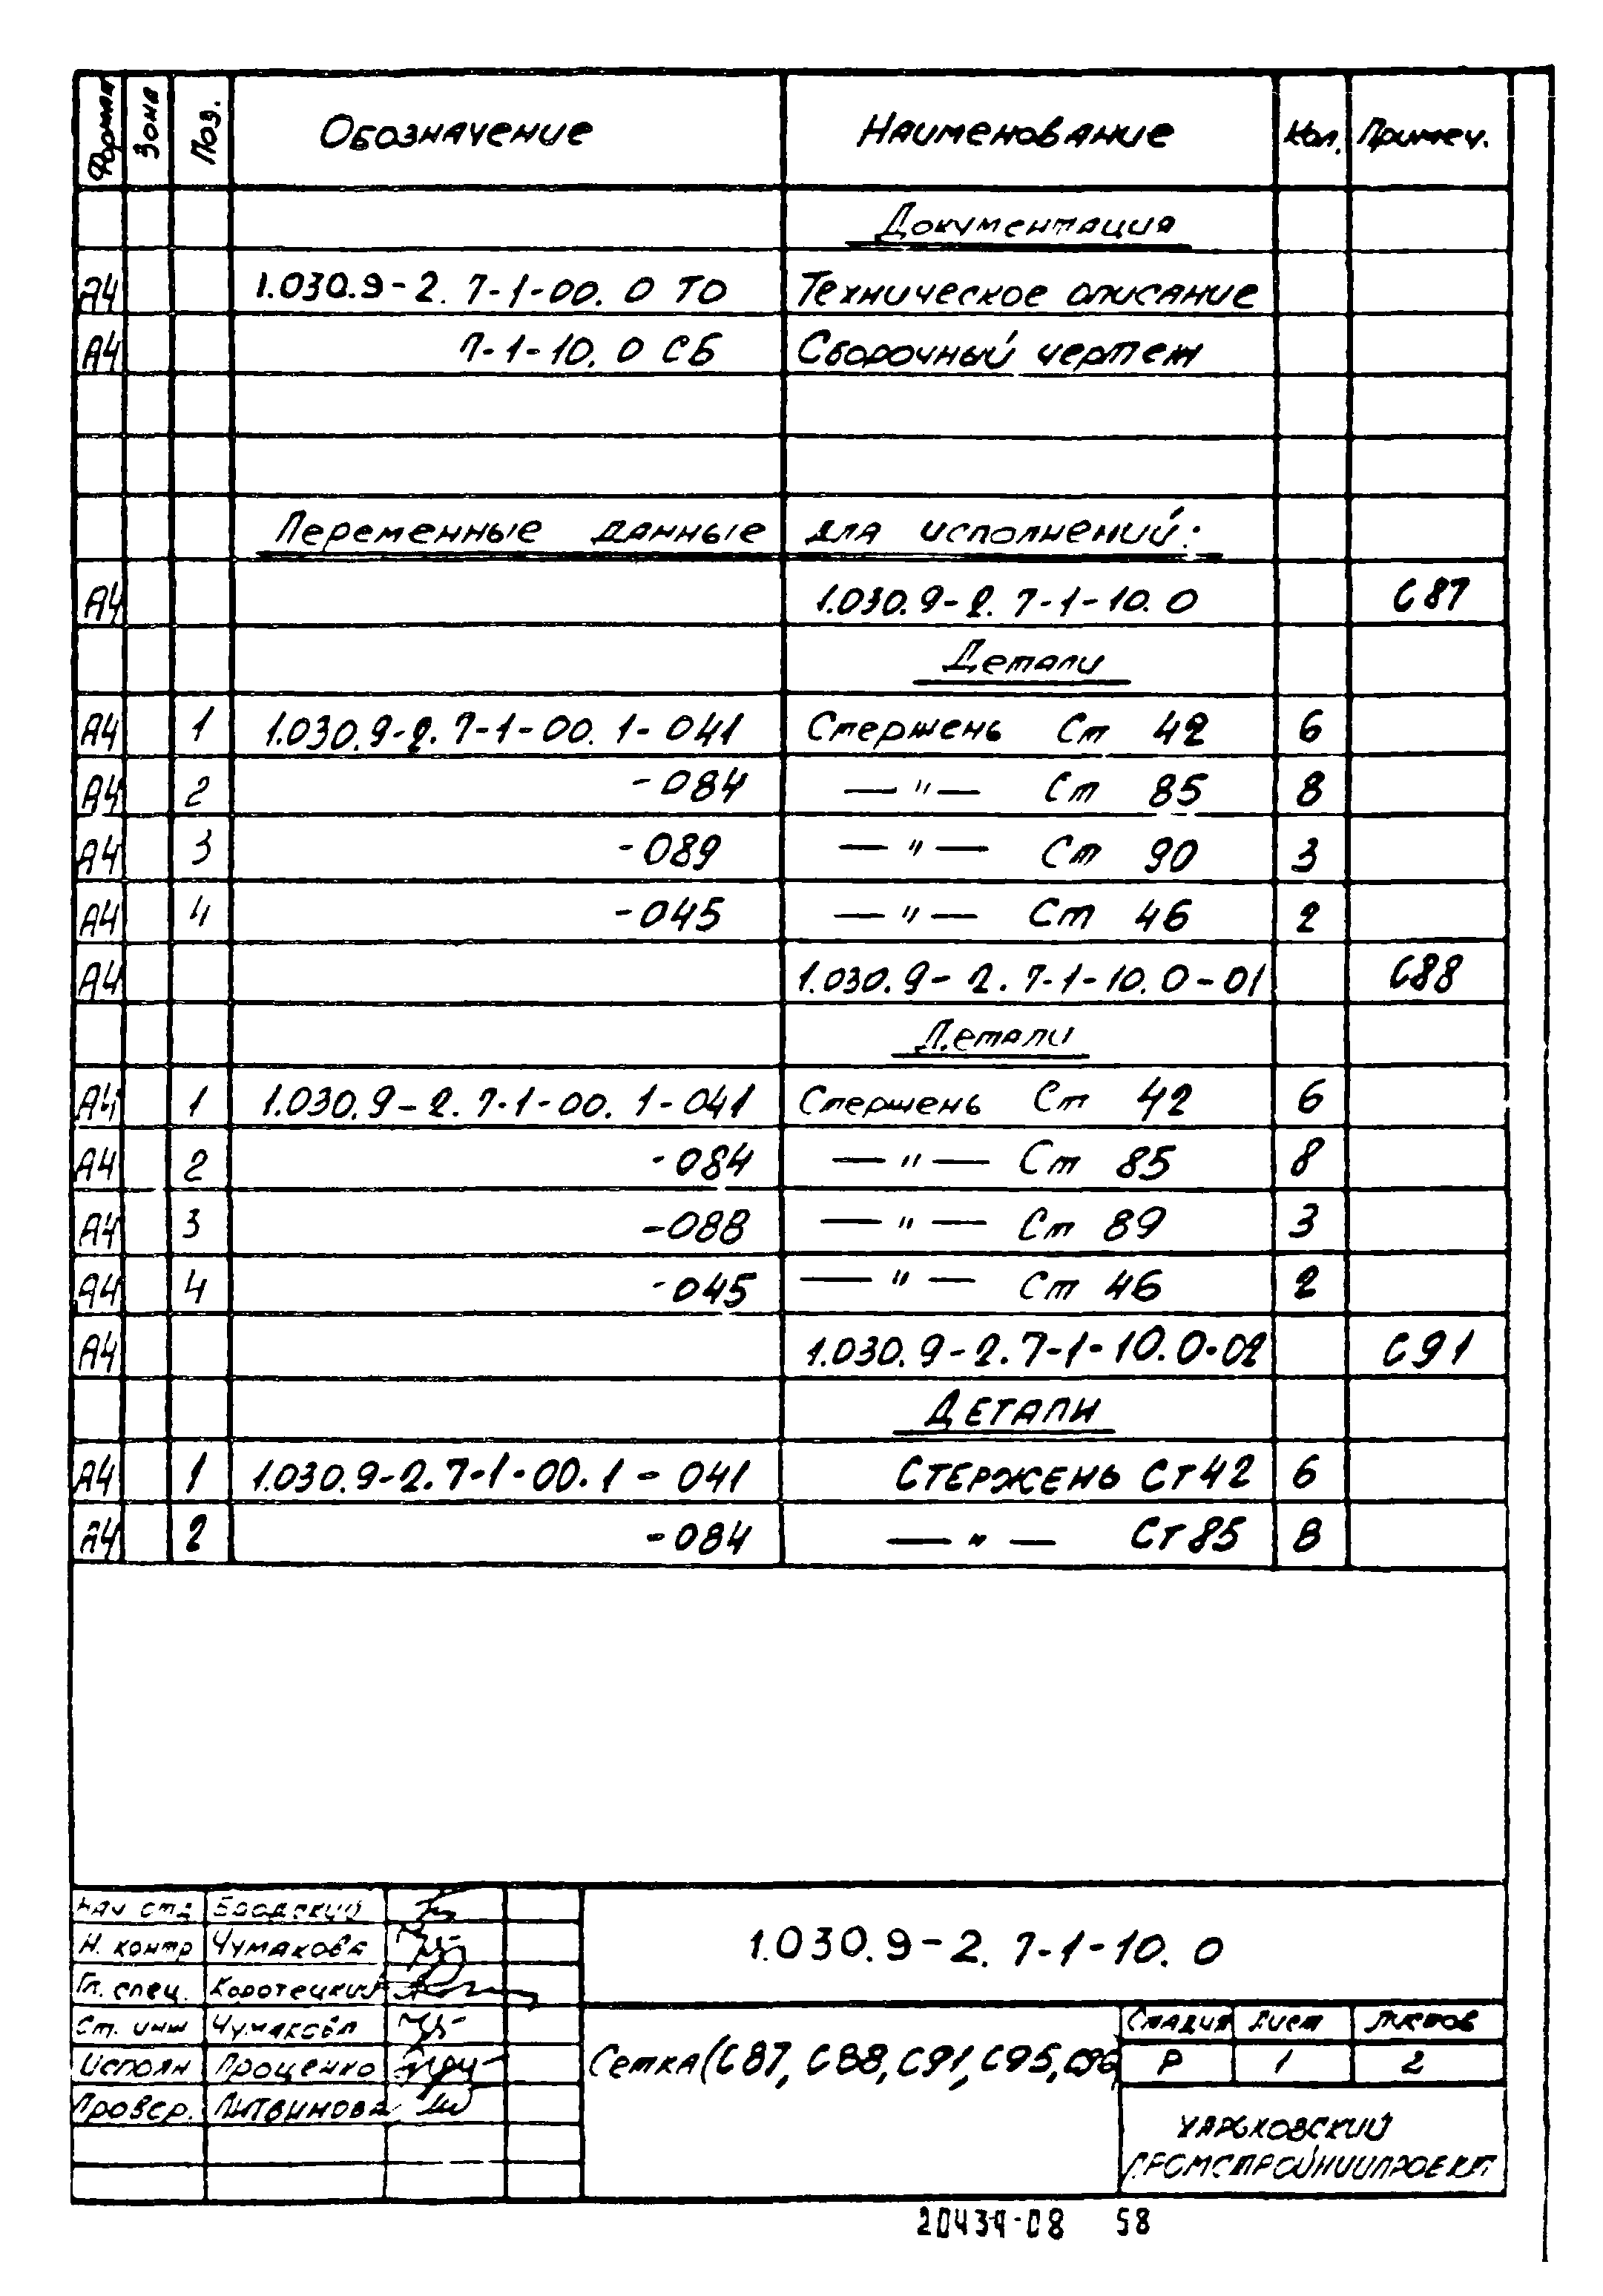 Формат Зона Поз. Обозначение Наименование Кол. Примеч.
Документация
А4 1.030.9-2. 7-1-00. 0 ТО Техническое описание
А4 7-1-10. 0 СБ Сборочный чертеж
Переменные данные для исполнений:
А4 1.030.9-2. 7-1-10. 0 С87
Детали
А4 1 1.030.9-2. 7-1-00. 1-041 Стержень Ст 42 6
А4 2 -084 — " — Ст 85 8
А4 3 -089 — " — Ст 90 3
А4 4 -045 — " — Ст 46 2
А4 1.030.9-2. 7-1-10. 0-01 С88
Детали
А4 1 1.030.9-2. 7-1-00. 1-041 Стержень Ст 42 6
А4 2 -084 — " — Ст 85 8
А4 3 -088 — " — Ст 89 3
А4 4 -045 — " — Ст 46 2
А4 1.030.9-2. 7-1-10. 0-02 С91
Детали
А4 1 1.030.9-2. 7-1-00. 1-041 Стержень Ст 42 6
А4 2 -084 — " — Ст 85 8
Нач отд Бродский
Н. контр Чумакова
Гл. спец. Коротецкий
Ст. инж Чумакова
Исполн Проценко
Провер. Литвинова
1.030.9-2. 7-1-10. 0
Сетка (С87, С88, С91, С95, С96)
Стадия Лист Листов
Р 1 2
Харьковский
Промстройниипроект
20434-08 58